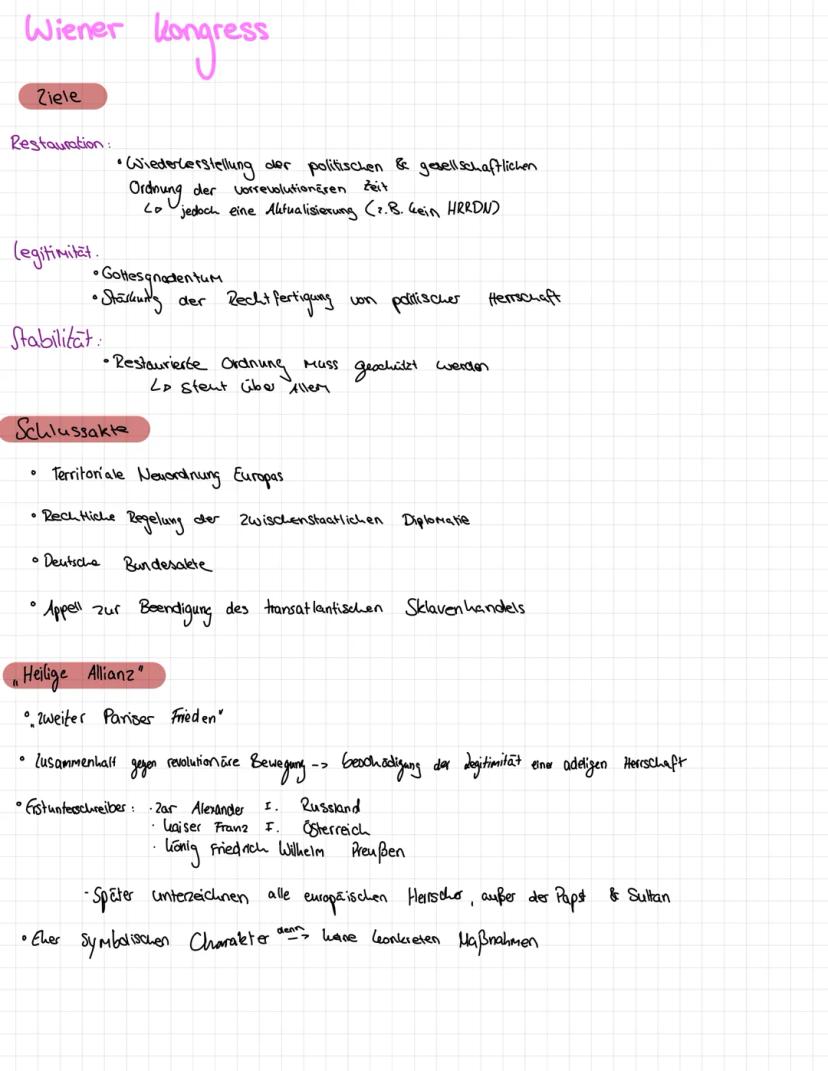 Wiener Kongress
Ziele
Restauration:
• Wiederherstellung der politischen & gesellschaftlichen
Ordnung der vorrevolutionären Zeit
↳ jedoch eine Aktualisierung (z.B. kein HRRDN)
Legitimität:
• Gottesgnadentum
• Stärkung der Rechtfertigung von politischer Herrschaft
Stabilität:
• Restaurierte Ordnung muss geschützt werden
↳ steht über Allem
Schlussakte
• Territoriale Neuordnung Europas
• Rechtliche Regelung der zwischenstaatlichen Diplomatie
• Deutsche Bundesakte
• Appell zur Beendigung des transatlantischen Sklavenhandels
„Heilige Allianz"
• „zweiter Pariser Frieden"
• Zusammenhalt gegen revolutionäre Bewegung -> Beschädigung der Legitimität einer adeligen Herrschaft
• Erstunterschreiber: · Zar Alexander I. Russland
· Kaiser Franz I. Österreich
· König Friedrich Wilhelm Preußen
- Später unterzeichnen alle europäischen Herrscher, außer der Papst & Sultan
• Eher symbolischen Charakter denn -> keine konkreten Maßnahmen